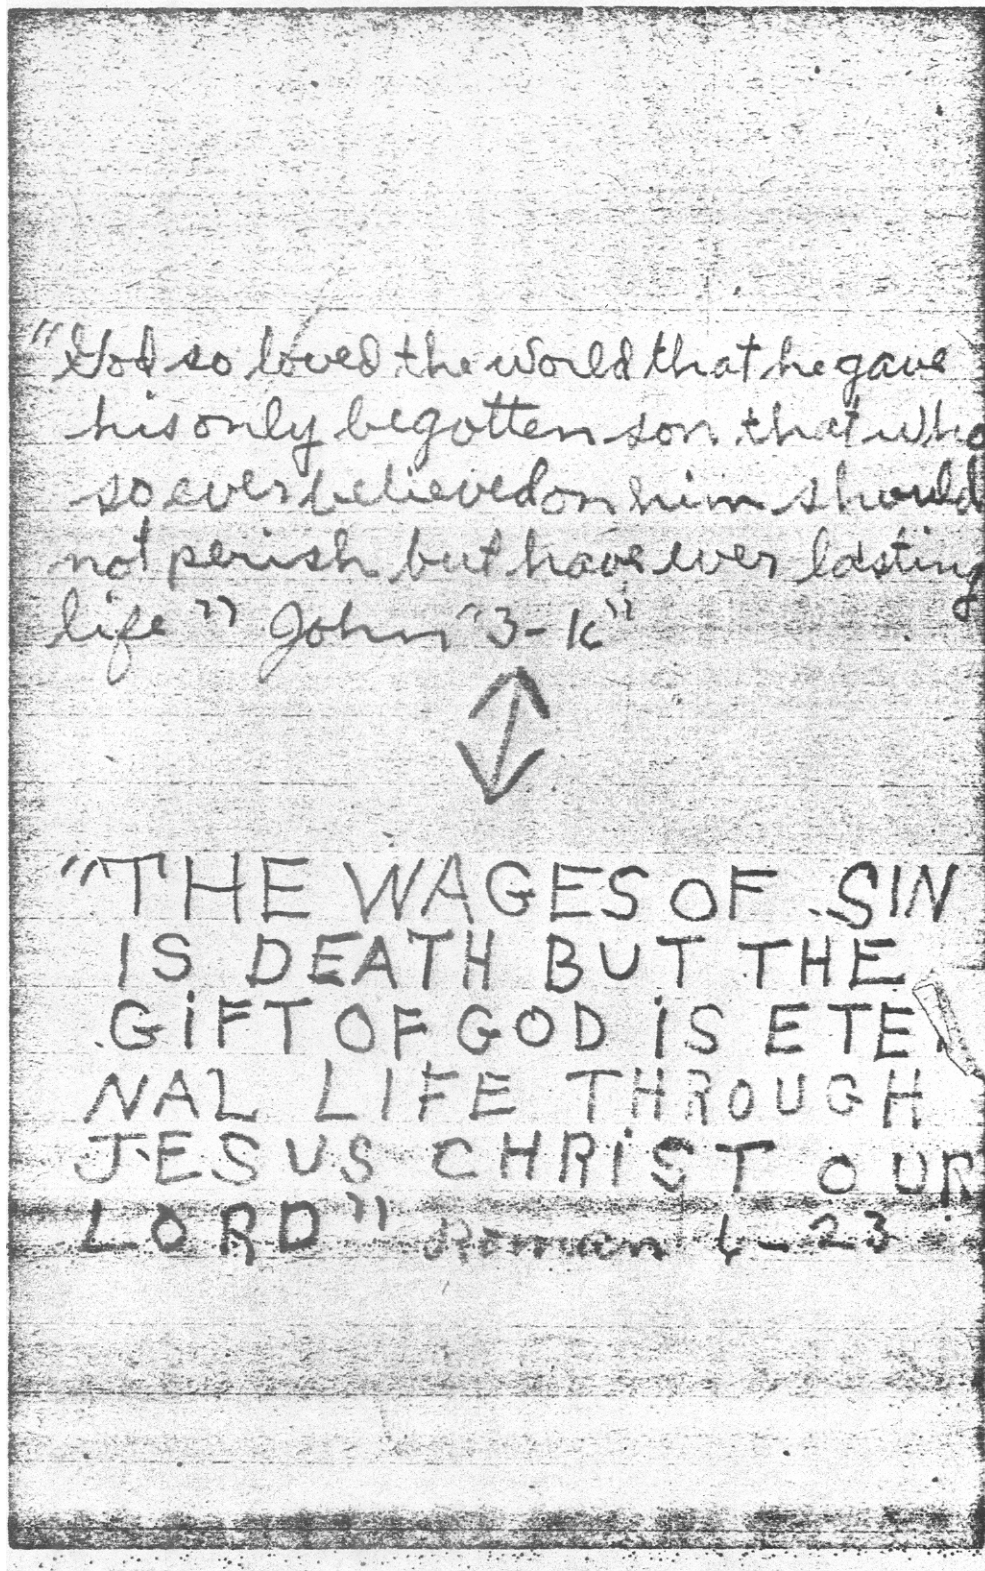 "God so loved the world that he gave
his only begotten son that who
so ever believed on him should
not perish but have ever lasting
life" John "3-16"
"THE WAGES OF SIN
IS DEATH BUT THE
GiFT OF GOD iS ETER
NAL LIFE THROUGH
JESUS CHRiST OUR
LORD" Roman 6-23